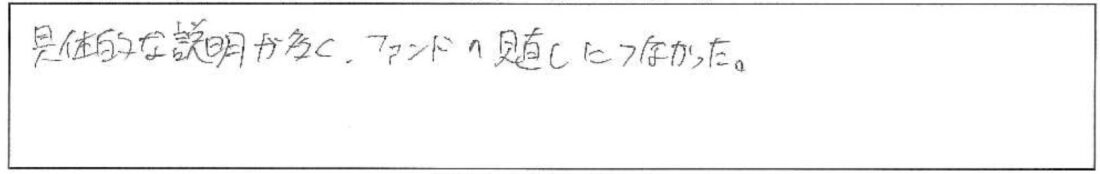 具体的な説明が多く、ファンドの見直しにつながった。